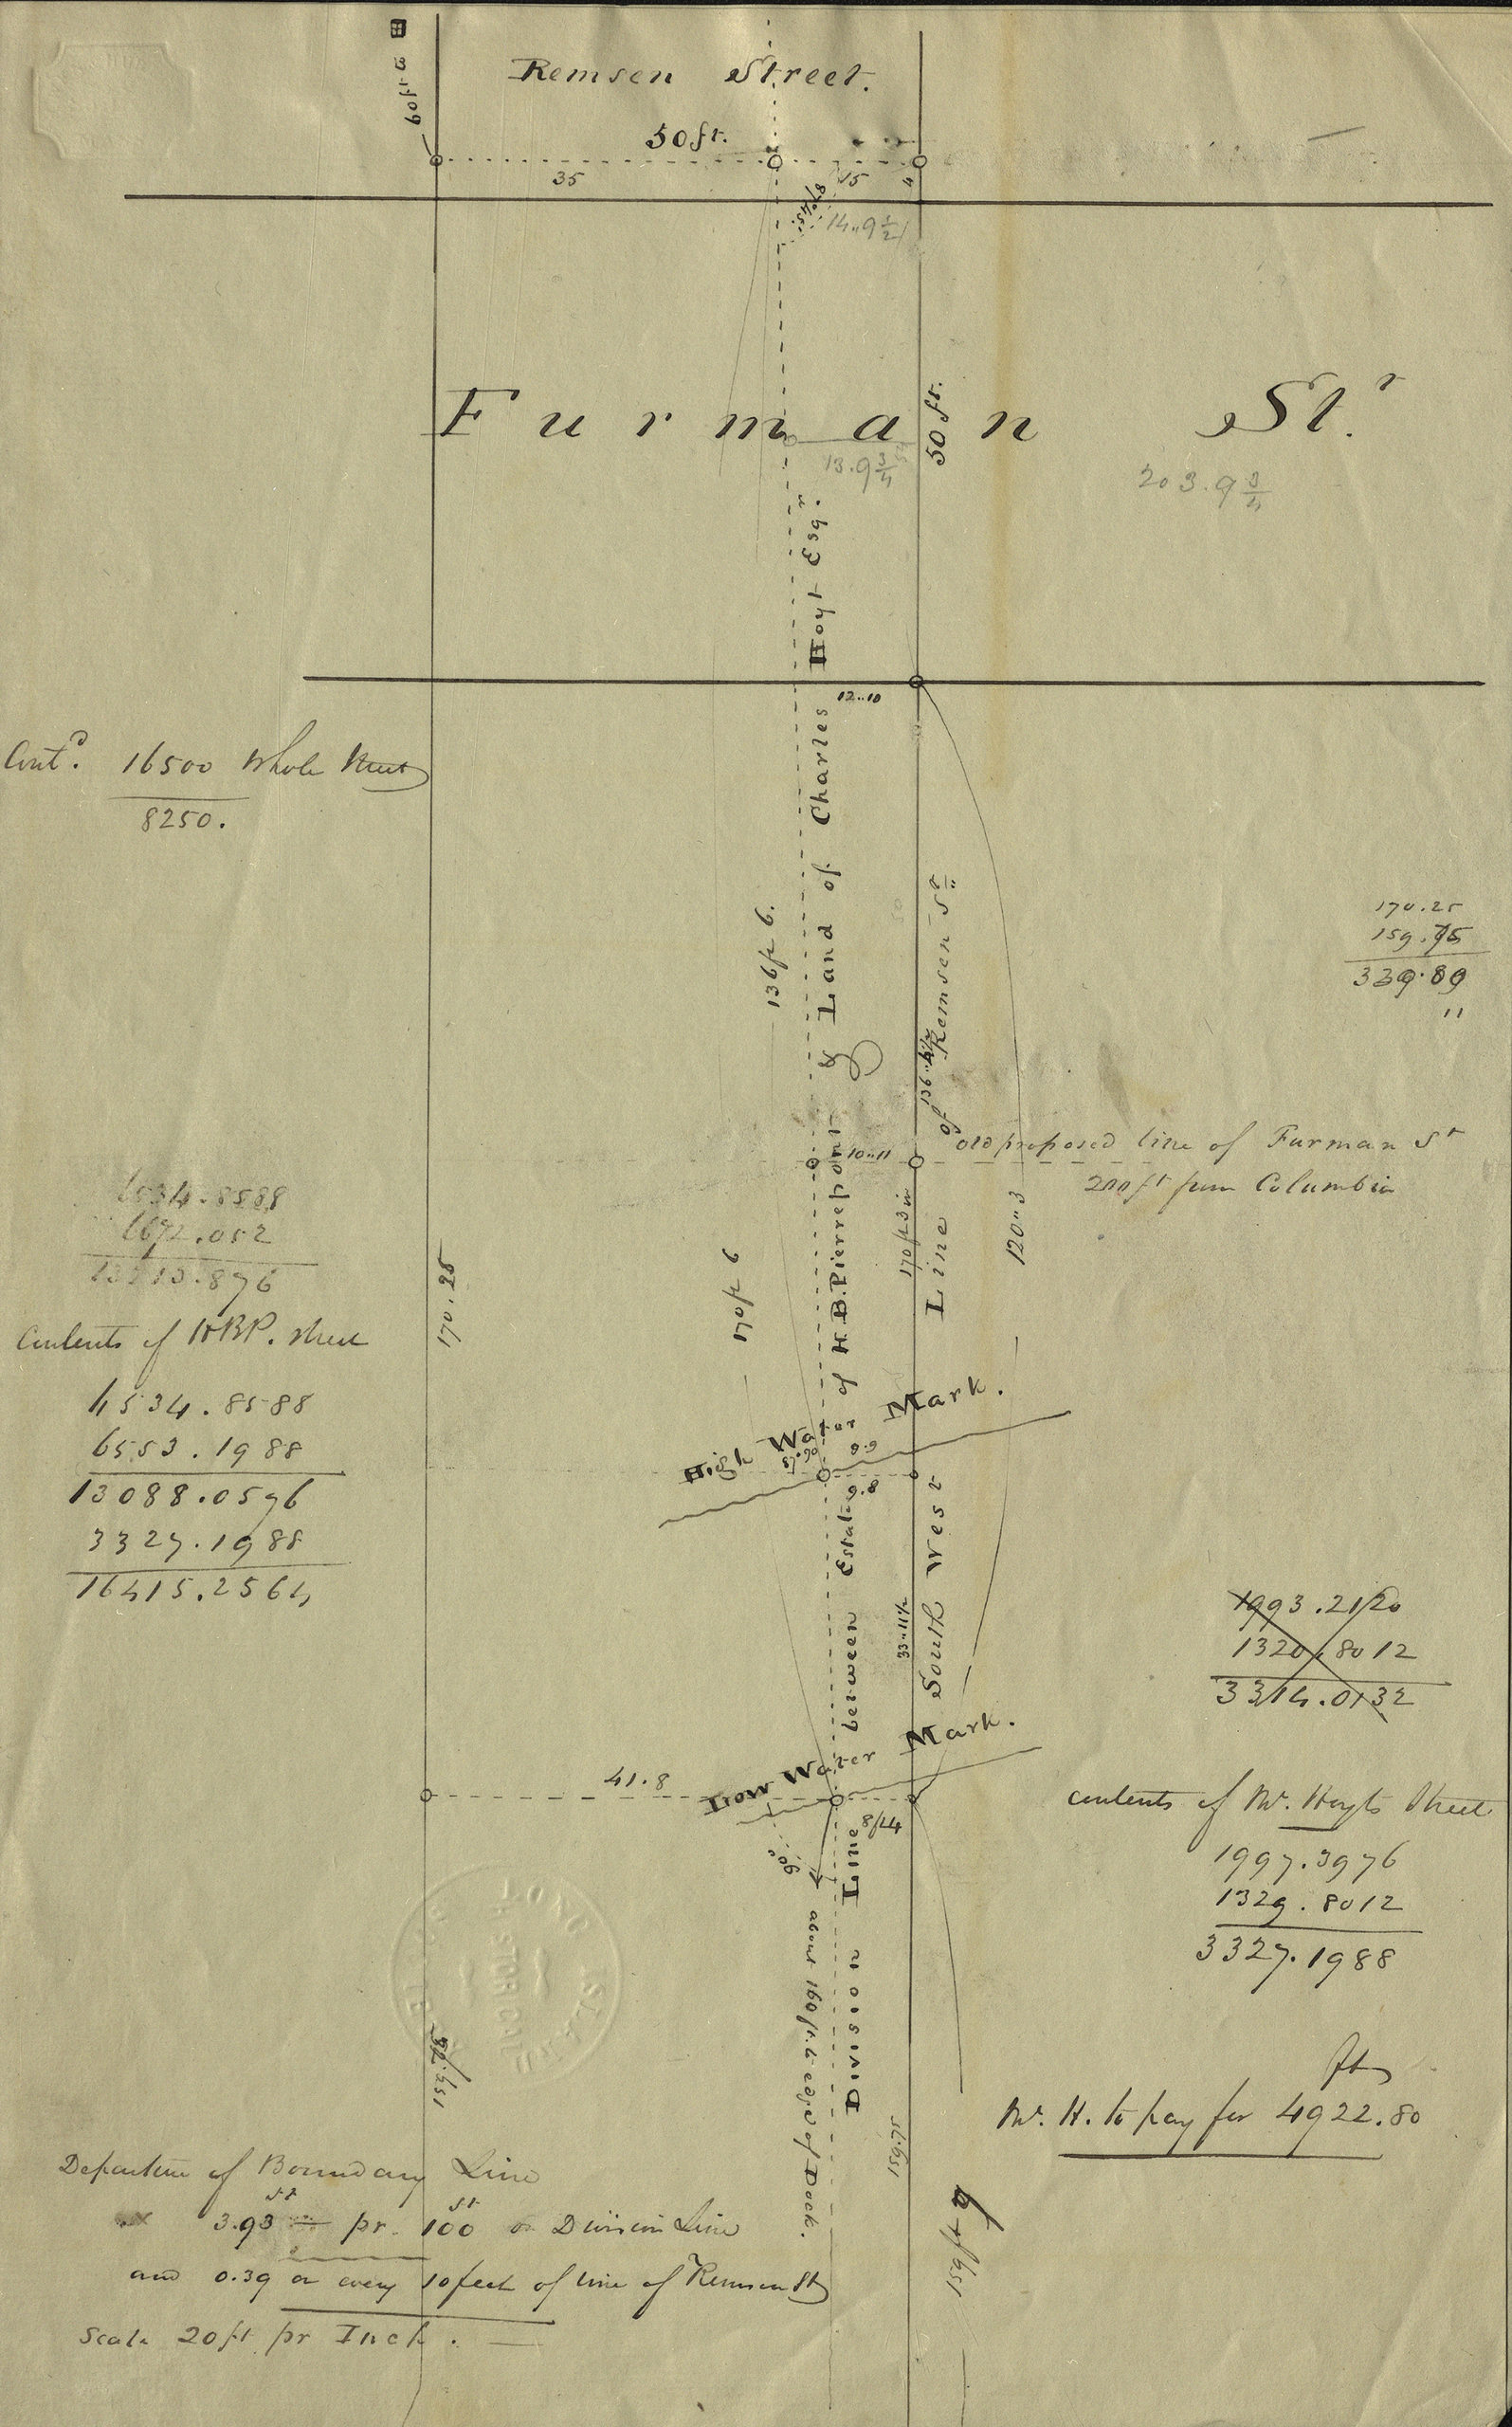 60 ft 3
Remsen Street.
50 ft.
35
15
4
14..9 1/2
Furman St.r
50 ft.
13.9 3/4
203.9 3/4
12..10
Contd. 16500 whole street
8250.
136 ft 6.
170.25
159.75
339.89
"
old proposed line of Furman St
200 ft from Columbia
10..11
170 ft 3 in
120..3
170 ft 6
170.25
6534.8588
6672.052
13213.876
Contents of HBP. street
6534.8588
6553.1988
13088.0576
3327.1988
16415.2564
High Water Mark.
9.9
9.8
33..11 1/2
1993.2120
1320.8012
3314.0132
Low Water Mark.
41.8
8 ft 4
90°
contents of Mr. Hoyts Street
1997.3976
1329.8012
3327.1988
Division Line between Estate of H.B. Pierrepont & Land of Charles Hoyt Esqr.
South West Line of Remsen St
about 160 ft. to edge of Dock.
159.75
159 ft 9
LONG ISLAND HISTORICAL
fts
Mr. H. to pay for 4922.80
Departure of Boundary Line
3.93 ft pr. 100 ft on Division Line
and 0.39 on every 10 feet of line of Remsen St
Scale 20 ft pr Inch.